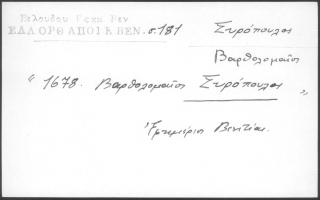 Βελούδου Εκκλ Βεν
ΕΛΛ ΟΡΘ ΑΠΟΙΚ ΒΕΝ. σ. 181
Συρόπουλος
Βαρθολομαῖος
" 1678. Βαρθολομαῖος Συρόπουλος "
Ἐφημέριος Βενετίας.